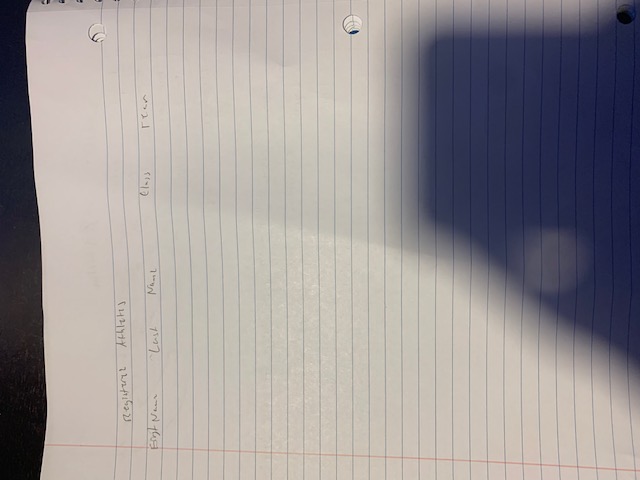 Registered Athletes
First Name Last Name Class Team